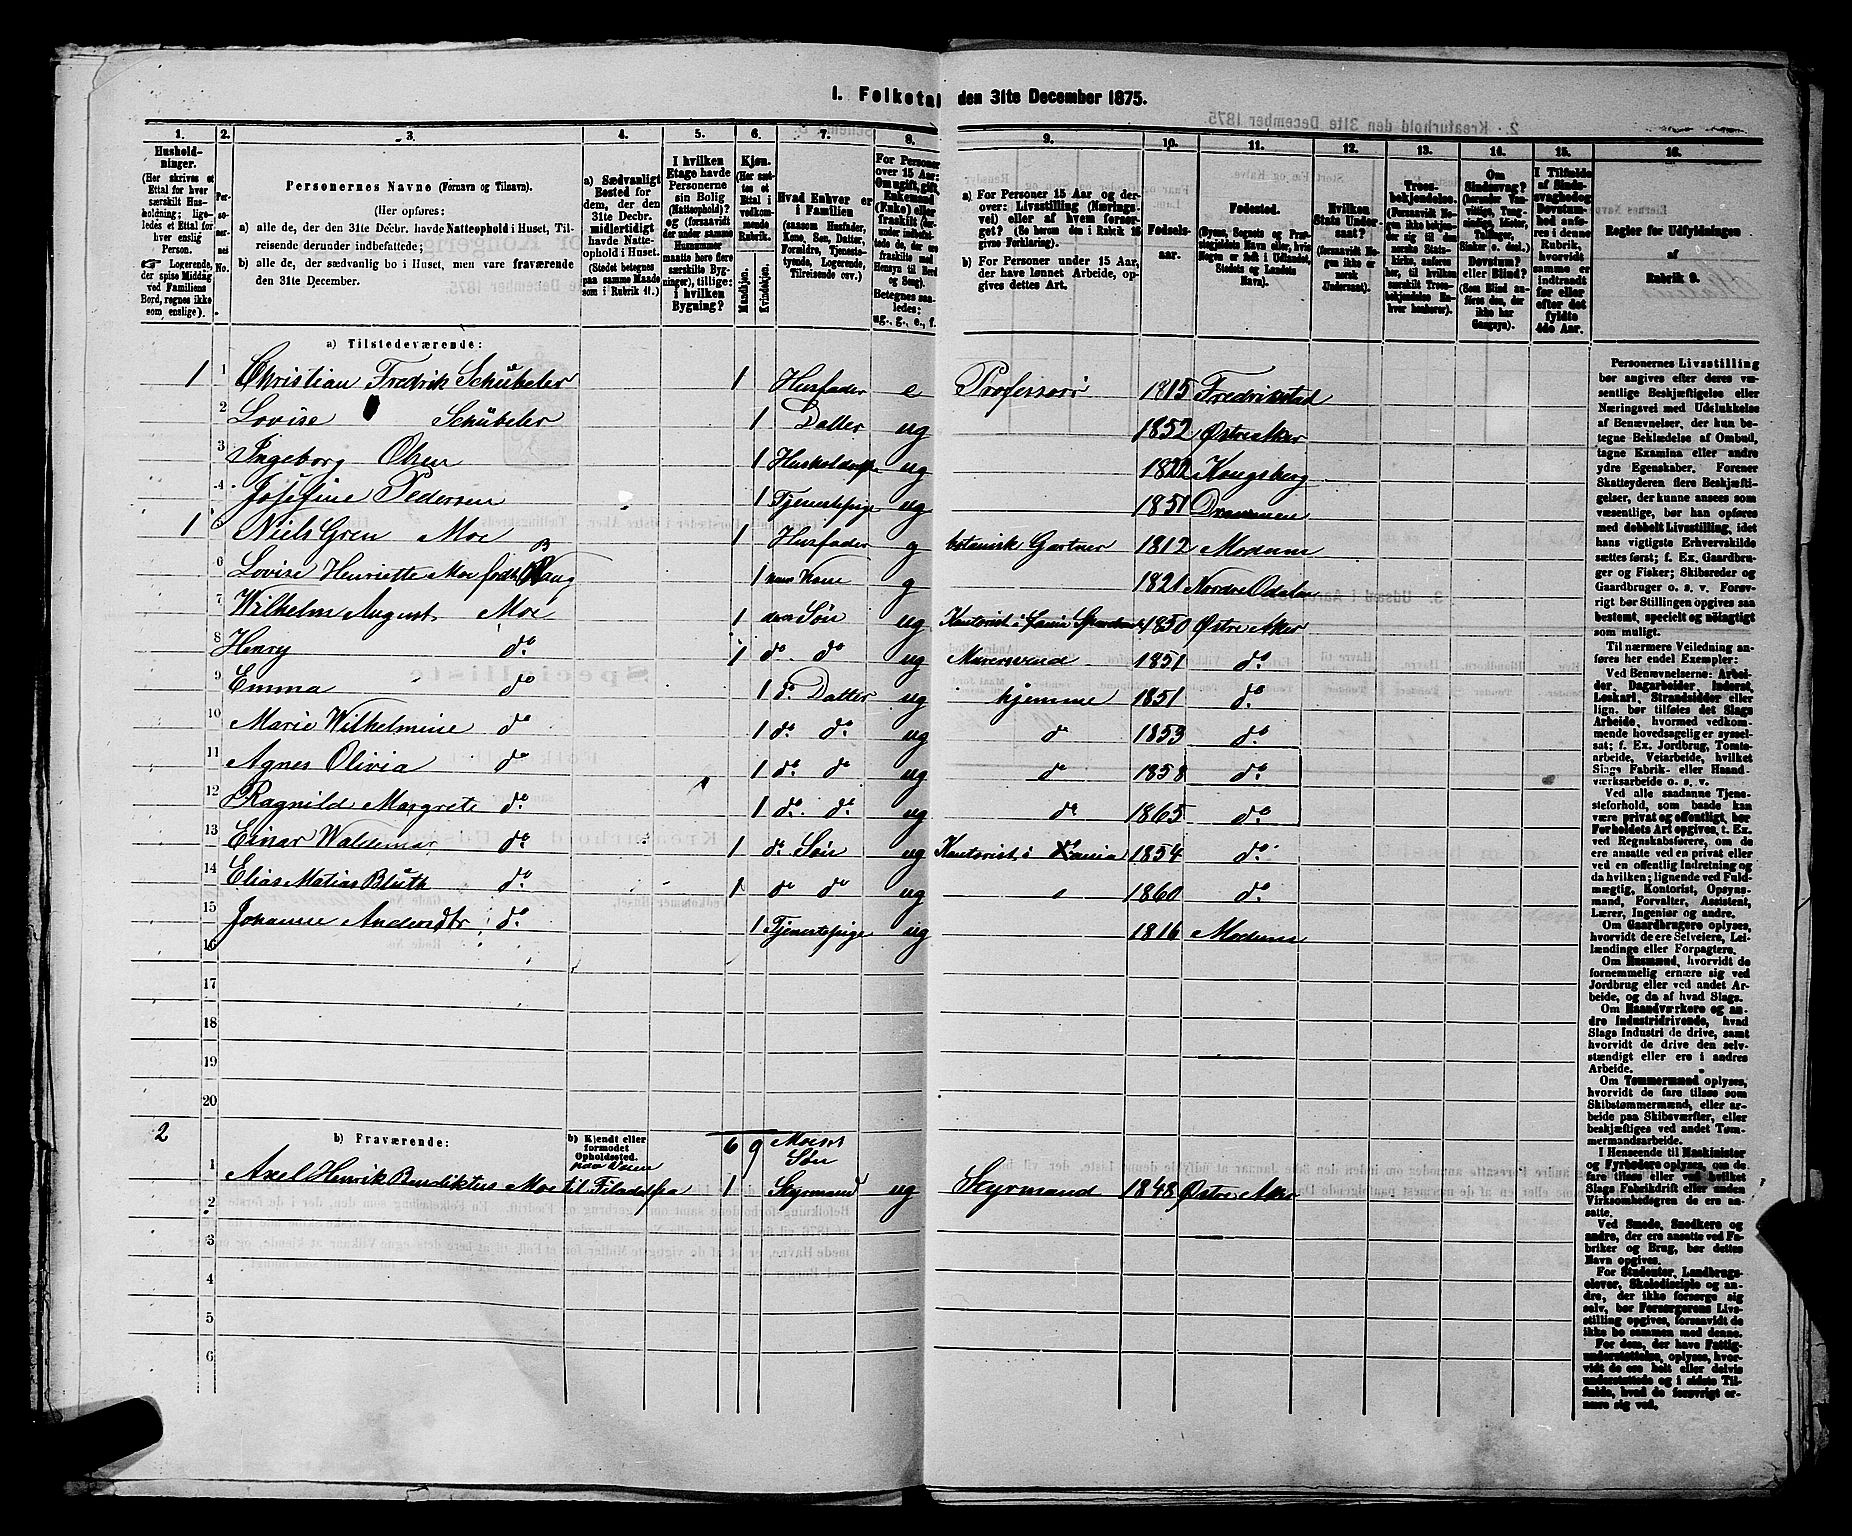 1. Folketal den 31te December 1875.
1. 2. 3. 4. 5. 6. 7. 8. 9. 10. 11. 12. 13. 14. 15. 16.
Husholdninger.
(Her skrives et Ettal for hver særskilt Husholdning; ligeledes et Ettal for hver enslig Person.
☞ Logerende, der spise Middag ved Familiens Bord, regnes ikke som enslige).
Personernes No.
Personernes Navne (Fornavn og Tilnavn).
(Her opføres:
a) alle de, der den 31te Decbr. havde Natteophold i Huset, Tilreisende derunder indbefattede;
b) alle de, der sædvanlig bo i Huset, men vare fraværende den 31te December.
a) Sædvanligt Bosted for dem, der den 31te Decbr. midlertidigt havde Natteophold i Huset.
(Stedet betegnes paa samme Maade som i Rubrik 11.)
I hvilken Etage havde Personerne sin Bolig (Natteophold)? og (forsaavidt der under samme Husnummer maatte høre flere særskilte Bygninger), tillige: i hvilken Bygning?
Kjøn.
(Her sættes et Ettal i vedkommende Rubrik.
Mandkjøn.
Kvindekjøn.
Hvad Enhver er i Familien
(saasom Husfader, Kone, Søn, Datter, Forældre, Tjenestetyende, Logerende, Tilreisende osv.)
For Personer over 15 Aar: Om ugift, gift, Enkemand (Enke) eller fraskilt
Betegnes saaledes: ug., g., e., f.
a) For Personer 15 Aar og derover: Livsstilling (Næringsvei) eller af hvem forsørget? (Se herom den i Rubrik 16 givne Forklaring).
b) For Personer under 15 Aar, der have lønnet Arbeide, opgives dettes Art.
Fødselsaar.
Fødested.
(Byens, Sognets og Præstegjeldets Navn eller, hvis Nogen er født i Udlandet, Stedets og Landets Navn).
Hvilken Stats Undersaat?
(forsaavidt Nogen ikke er norsk Undersaat).
Troesbekjendelse.
(Forsaavidt Nogen ikke bekjender sig til den norske Statskirke, anføres her, til hvilken særskilt Troesbekjendelse Enhver henhører).
Om Sindssvag? Døvstum? eller Blind?
(Som Blind anføres den, der ikke har Gangsyn).
I Tilfælde af Sindssvaghed og Døvstumhed anføres i denne Rubrik, hvorvidt samme er indtraadt før eller efter det fyldte 4de Aar.
Regler for Udfyldningen af Rubrik 9.
a) Tilstedeværende:
1 1 Christian Fredrik Schübeler 1 Husfader e Professor 1815 Fredrikstad
2 Lovise Schübeler 1 Datter ug 1852 Østre Aker
3 Ingeborg Olsen 1 ug 1822 Kongsberg
4 Josefine Pedersen 1 Tjenestepige ug 1851 Drammen
1 5 Niels Gren Moe 1 Husfader g botanisk Gartner 1812 Modum
6 Lovise Henriette Moe født 1 hans Kone g 1821 Nordre Odalen
7 Wilhelm August Moe 1 deres Søn ug Kontorist i 1850 Østre Aker
8 Henry do 1 do do ug 1851 do
9 Emma do 1 do Datter ug hjemme 1851 do
10 Marie Wilhelmine do 1 do do ug do 1853 do
11 Agnes Olivia do 1 do do ug do 1858 do
12 Ragnild Margrete do 1 do do ug do 1865 do
13 Einar Waldemar do 1 do Søn ug Kontorist i Xania 1854 do
14 Elias Matias Bluth do 1 do do ug 1860 do
15 Johanne Andersdtr do 1 Tjenestepige ug 1816 Modum
16
17
18
19
20
2 b) Fraværende: b) Kjendt eller formodet Opholdssted. 6 9 Moes
paa Søn
1 Axel Henrik Bendiktus Moe til Filadelfia 1 Styrmand ug Styrmand 1848 Østre Aker
2
3
4
5
6
Personernes Livsstilling bør angives efter deres væsentlige Beskjæftigelse eller Næringsvei med Udelukkelse af Benævnelser, der kun betegne Beklædelse af Ombud, tagne Examina eller andre ydre Egenskaber. Forener Skatteyderen flere Beskjæftigelser, der kunne ansees som væsentlige, bør han opføres med dobbelt Livsstilling, idet hans vigtigste Erhvervskilde sættes først; f. Ex. Gaardbruger og Fisker; Skibsreder og Gaardbruger o. s. v. Forøvrigt bør Stillingen opgives saa bestemt, specielt og nøiagtigt som muligt.
Til nærmere Veiledning anføres her endel Exempler:
Ved Benævnelserne: Arbeider, Dagarbeider, Inderst, Løskarl, Strandsidder eller lign. bør tilføies det Slags Arbeide, hvormed vedkommende hovedsagelig er sysselsat; f. Ex. Jordbrug, Tomtearbeide, Veiarbeide, hvilket Slags Fabrik- eller Haandværksarbeide o. s. v.
Ved alle saadanne Tjenesteforhold, som baade kan være privat og offentligt, bør Forholdets Art opgives, t. Ex. ved Regnskabsførere, som de ere ansatte ved en privat eller ved en offentlig Indretning og da hvilken; lignende ved Fuldmægtig, Kontorist, Opsynsmand, Forvalter, Assistent, Lærer, Ingeniør og andre.
Om Gaardbrugere oplyses, hvorvidt de ere Selveiere, Leilændinge eller Forpagtere.
Om Husmænd, hvorvidt de fornemmelig ernære sig ved Jordbrug eller ved andet Arbeide, og da af hvad Slags.
Om Haandværkere og andre Industridrivende, hvad Slags Industri de drive, samt hvorvidt de drive den selvstændigt eller ere i andres Arbeide.
Om Tømmermænd oplyses, hvorvidt de fare tilsøs som Skibstømmermænd, eller arbeide paa Skibsværfter, eller beskjæftiges ved andet Tømmermandsarbeide.
I Henseende til Maskinister og Fyrbødere oplyses, om de fare tilsøs eller ved hvilket Slags Fabrikdrift eller anden Virksomhed de ere ansatte.
Ved Smede, Snedkere og andre, der ere ansatte ved Fabriker og Brug, bør dettes Navn opgives.
For Studenter, Landbrugselever, Skoledisciple og andre, der ikke forsørge sig selv, bør Forsørgerens Livsstilling opgives, forsaavidt de ikke bo sammen med denne.
For dem, der have Fattigunderstøttelse, oplyses, hvorvidt de ere helt eller delvis understøttede og i sidste Tilfælde, hvad de forøvrigt ernære sig ved.